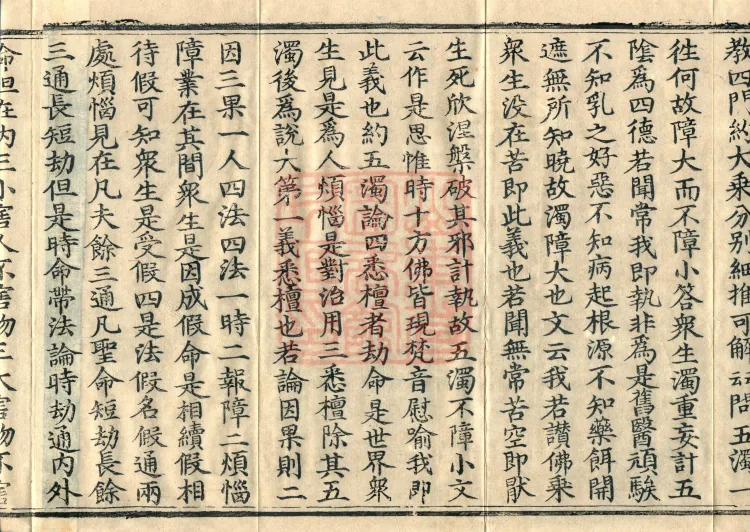 教四門約大乘分別細推可解云問五濁一
徃何故障大而不障小答衆生濁重妄計五
陰為四德若聞常我即執非為是舊醫頑騃
不知乳之好惡不知病起根源不知藥餌開
遮無所知曉故濁障大也文云我若讃佛乘
衆生没在苦即此義也若聞無常苦空即猒
生死欣涅槃破其邪計執故五濁不障小文
云作是思惟時十方佛皆現梵音慰喻我即
此義也約五濁論四悉檀者劫命是世界衆
生見是為人煩惱是對治用三悉檀除其五
濁後為說大第一義悉檀也若論因果則二
因三果一人四法四法一時二報障二煩惱
障業在其間衆生是因成假命是相續假相
待假可知衆生是受假四是法假名假通兩
處煩惱見在凡夫餘三通凡聖命短劫長餘
三通長短劫但是時命帶法論時劫通內外
命但在內三小害人不害物三大害物不害